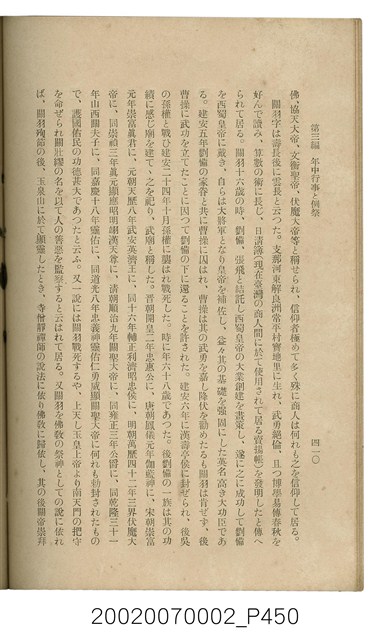 第三編　年中行事と例祭
四一〇
佛、協天大帝、文衡聖帝、伏魔大帝等と稱せられ、信仰者極めて多く殊に商人は何れも之を信仰して居る。
關羽字は壽長後に雲長と云つた。支那河東解良洲常平村寶地里に生れ、武勇絕倫、且つ博學易傳春秋を
好んで讀み、算數の術に長じ、日淸簿(現在臺灣の商人間に於て使用されて居る賣揚帳)を發明したと傳へ
られて居る。關羽十六歲の時、劉備、張飛と結託し西蜀皇帝の大業創建を畫策し、遂に之に成功して劉備
を西蜀皇帝に戴き、自らは大將軍となり皇帝を補佐し、益々其の基礎を强固にした英名高き大功臣であ
る。建安五年劉備の家眷と共に曹操に囚はれ、曹操は其の武勇を嘉し降伏を勸めたるも關羽は肯ぜず、後
曹操に武功を立てたことに因つて劉備の下に還ることを許された。建安六年に漢壽亭侯に封ぜられ、後吳
の孫權と戰ひ建安二十四年十月孫權に襲はれ戰死した。時に年六十八歲であつた。後劉備の一族は其の功
績に感じ廟を建て丶之を祀り、武廟と稱した。晋朝開皇二年忠惠公に、唐朝鳳儀元年伽藍神に、宋朝崇富
元年崇富眞君に、元朝天歷八年武安英濟王に、同十六年輔正利濟昭忠侯に、明朝萬歷四十二年三界伏魔大
帝に、同崇禎三年眞元顯應昭明翊漢天尊に、淸朝順治九年關聖大帝に、同雍正三年公爵に、同乾隆三十一
年山西關夫子に、同嘉慶十八年靈佑に、同道光八年忠義神靈佑仁勇威顯關聖大帝に何れも勅封されたもの
で、護國佑民の功德甚大であつたと云ふ。又一說には關羽戰死するや、上天し玉皇上帝より南天門の把守
を命ぜられ關壯繆の名を以て人の善惡を監察すると云はれて居る。又關羽を佛敎の祭神としての說に依れ
ば、關羽殉節の後、玉泉山に於て顯靈したとき、寺僧靜禪師の說法に依り佛敎に歸依し、其の後關帝崇拜
20020070002_P450